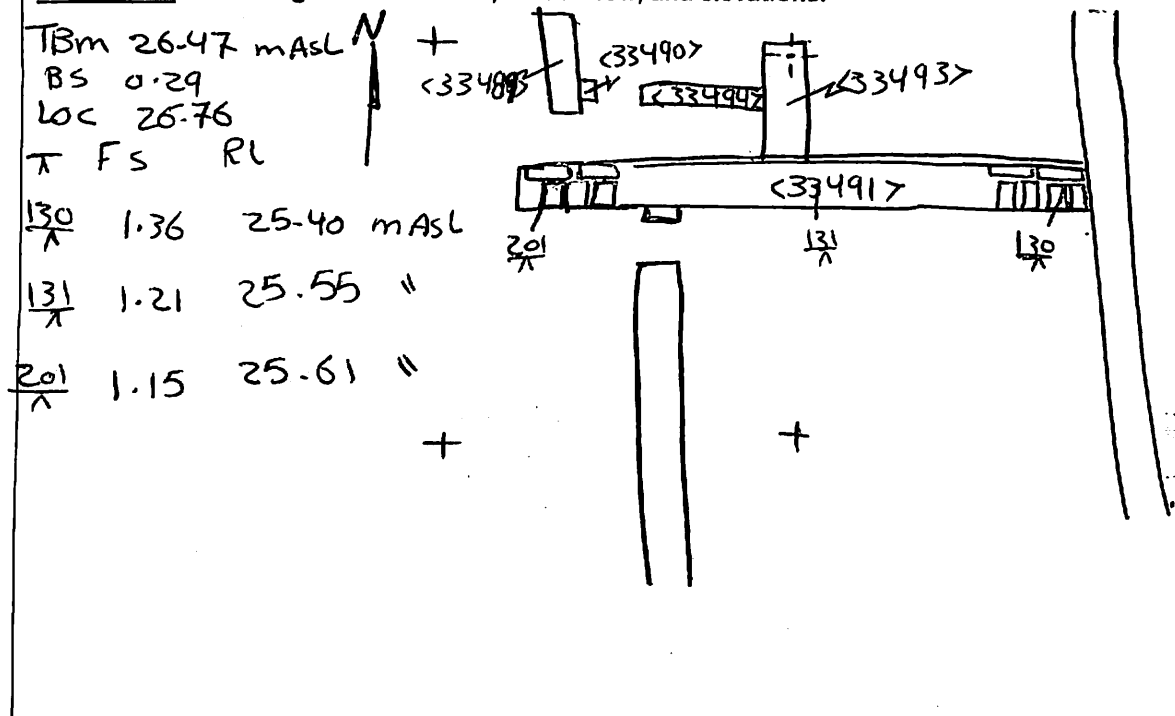 and elevations.
TBm 26.47 mAsL
BS 0.29
LOC 26.76
⊼ FS RL
130/⊼ 1.36 25.40 mAsL
131/⊼ 1.21 25.55 "
201/⊼ 1.15 25.61 "
N
<33490>
<33494>
<33493>
<33491>
201/⊼
131/⊼
130/⊼